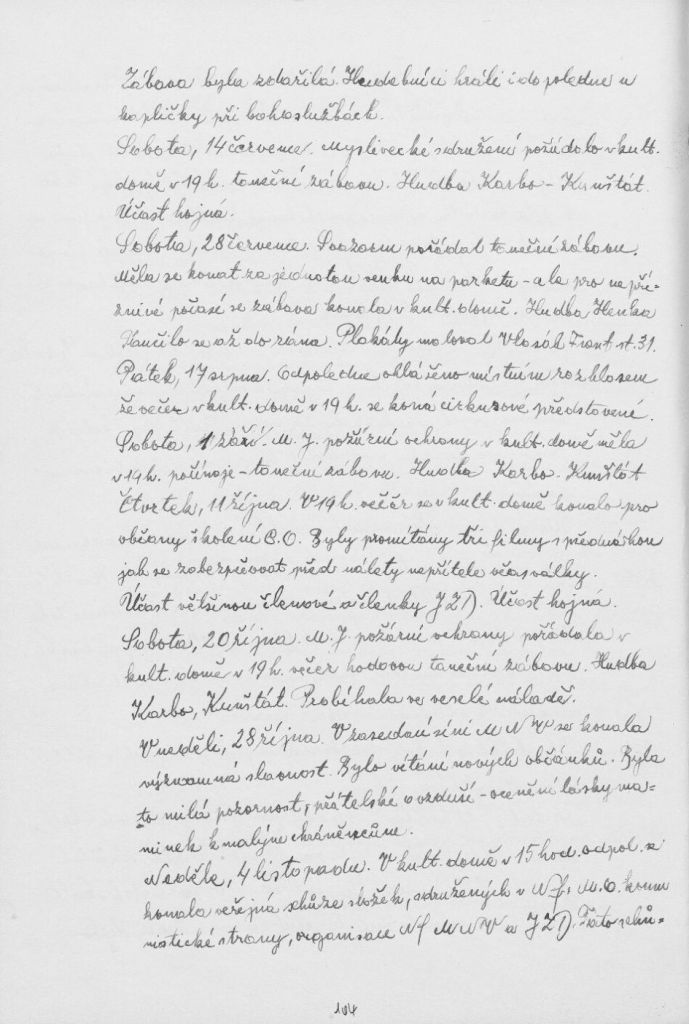 Zábava byla zdařilá. Hudebníci hráli i dopoledne u
kapličky při bohoslužbách.
Sobota, 14 červenec. Myslivecké sdružení požádalo v kult.
domě v 19 h. taneční zábavu. Hudba Karbo - Kunštát.
Účast hojná.
Sobota, 28 červenec. Svazarm pořádal taneční zábavu.
Měla se konat za jednotou venku na parketu - ale pro nepří=
znivé počasí se zábava konala v kult. domě. Hudba Henka
Tančilo se až do rána. Plakáty maloval Vlasák Frant. st. 31.
Pátek, 17 srpna. Odpoledne ohlášeno místním rozhlasem
že večer v kult. domě v 19 h. se koná cirkusové představení.
Sobota, 1 září. M. J. požární ochrany v kult. domě měla
v 19 h. počínaje - taneční zábavu. Hudba Karbo. Kunštát
Čtvrtek, 11 října. V 19 h. večer se v kult. domě konalo pro
občany školení C.O. Byly promítány tři filmy s přednáškou
jak se zabezpečovat před nálety nepřítele v čas války.
Účast většinou členové a členky JZD. Účast hojná.
Sobota, 20 října. M. J. požární ochrany pořádala v
kult. domě v 19 h. večer hodovou taneční zábavu. Hudba
Karbo, Kunštát. Probíhala ve veselé náladě.
V neděli, 28 října. V zasedací síni MNV se konala
významná slavnost. Bylo vítání nových občánků. Byla
to milá pozornost, přátelské ovzduší - ocenění lásky ma=
minek k malým chráněncům.
Neděle, 4 listopadu. V kult. domě v 15 hod. odpol. se
konala veřejná schůze složek, sdružených v NF: M.O. komu
nistické strany, organisace NF MNV a JZD. Tato schů=
104